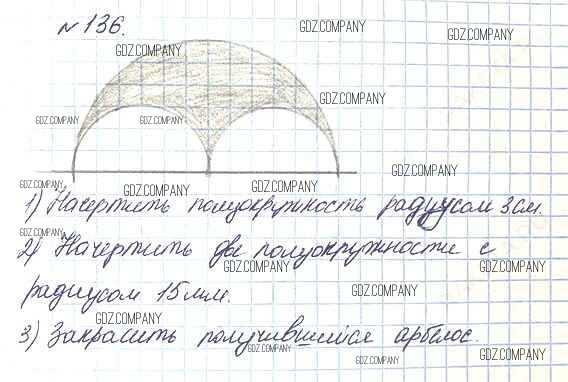 № 136.
GDZ.COMPANY GDZ.COMPANY GDZ.COMPANY
GDZ.COMPANY
GDZ.COMPANY GDZ.COMPANY
GDZ.COMPANY
GDZ.COMPANY GDZ.COMPANY GDZ.COMPANY
1) Начертить полуокружность радиусом 3 см.
GDZ.COMPANY
2) Начертить две полуокружности с
GDZ.COMPANY GDZ.COMPANY
радиусом 15 мм.
GDZ.COMPANY
GDZ.COMPANY
3) Закрасить получившийся арбелос.
GDZ.COMPANY GDZ.COMPANY GDZ.COMPANY